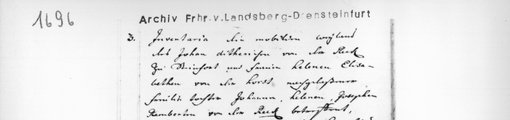 1696
Archiv Frhr. v. Landsberg-Drensteinfurt
3. Inventaria der mobilien weyland
des Johan ditherichen von der Reck
zu Steinfort und seinen helenen Elisa-
bethen von der horst, nachgelaßener
familie tochter Johanna, helenen, Josephen
von der Reck betreffent,